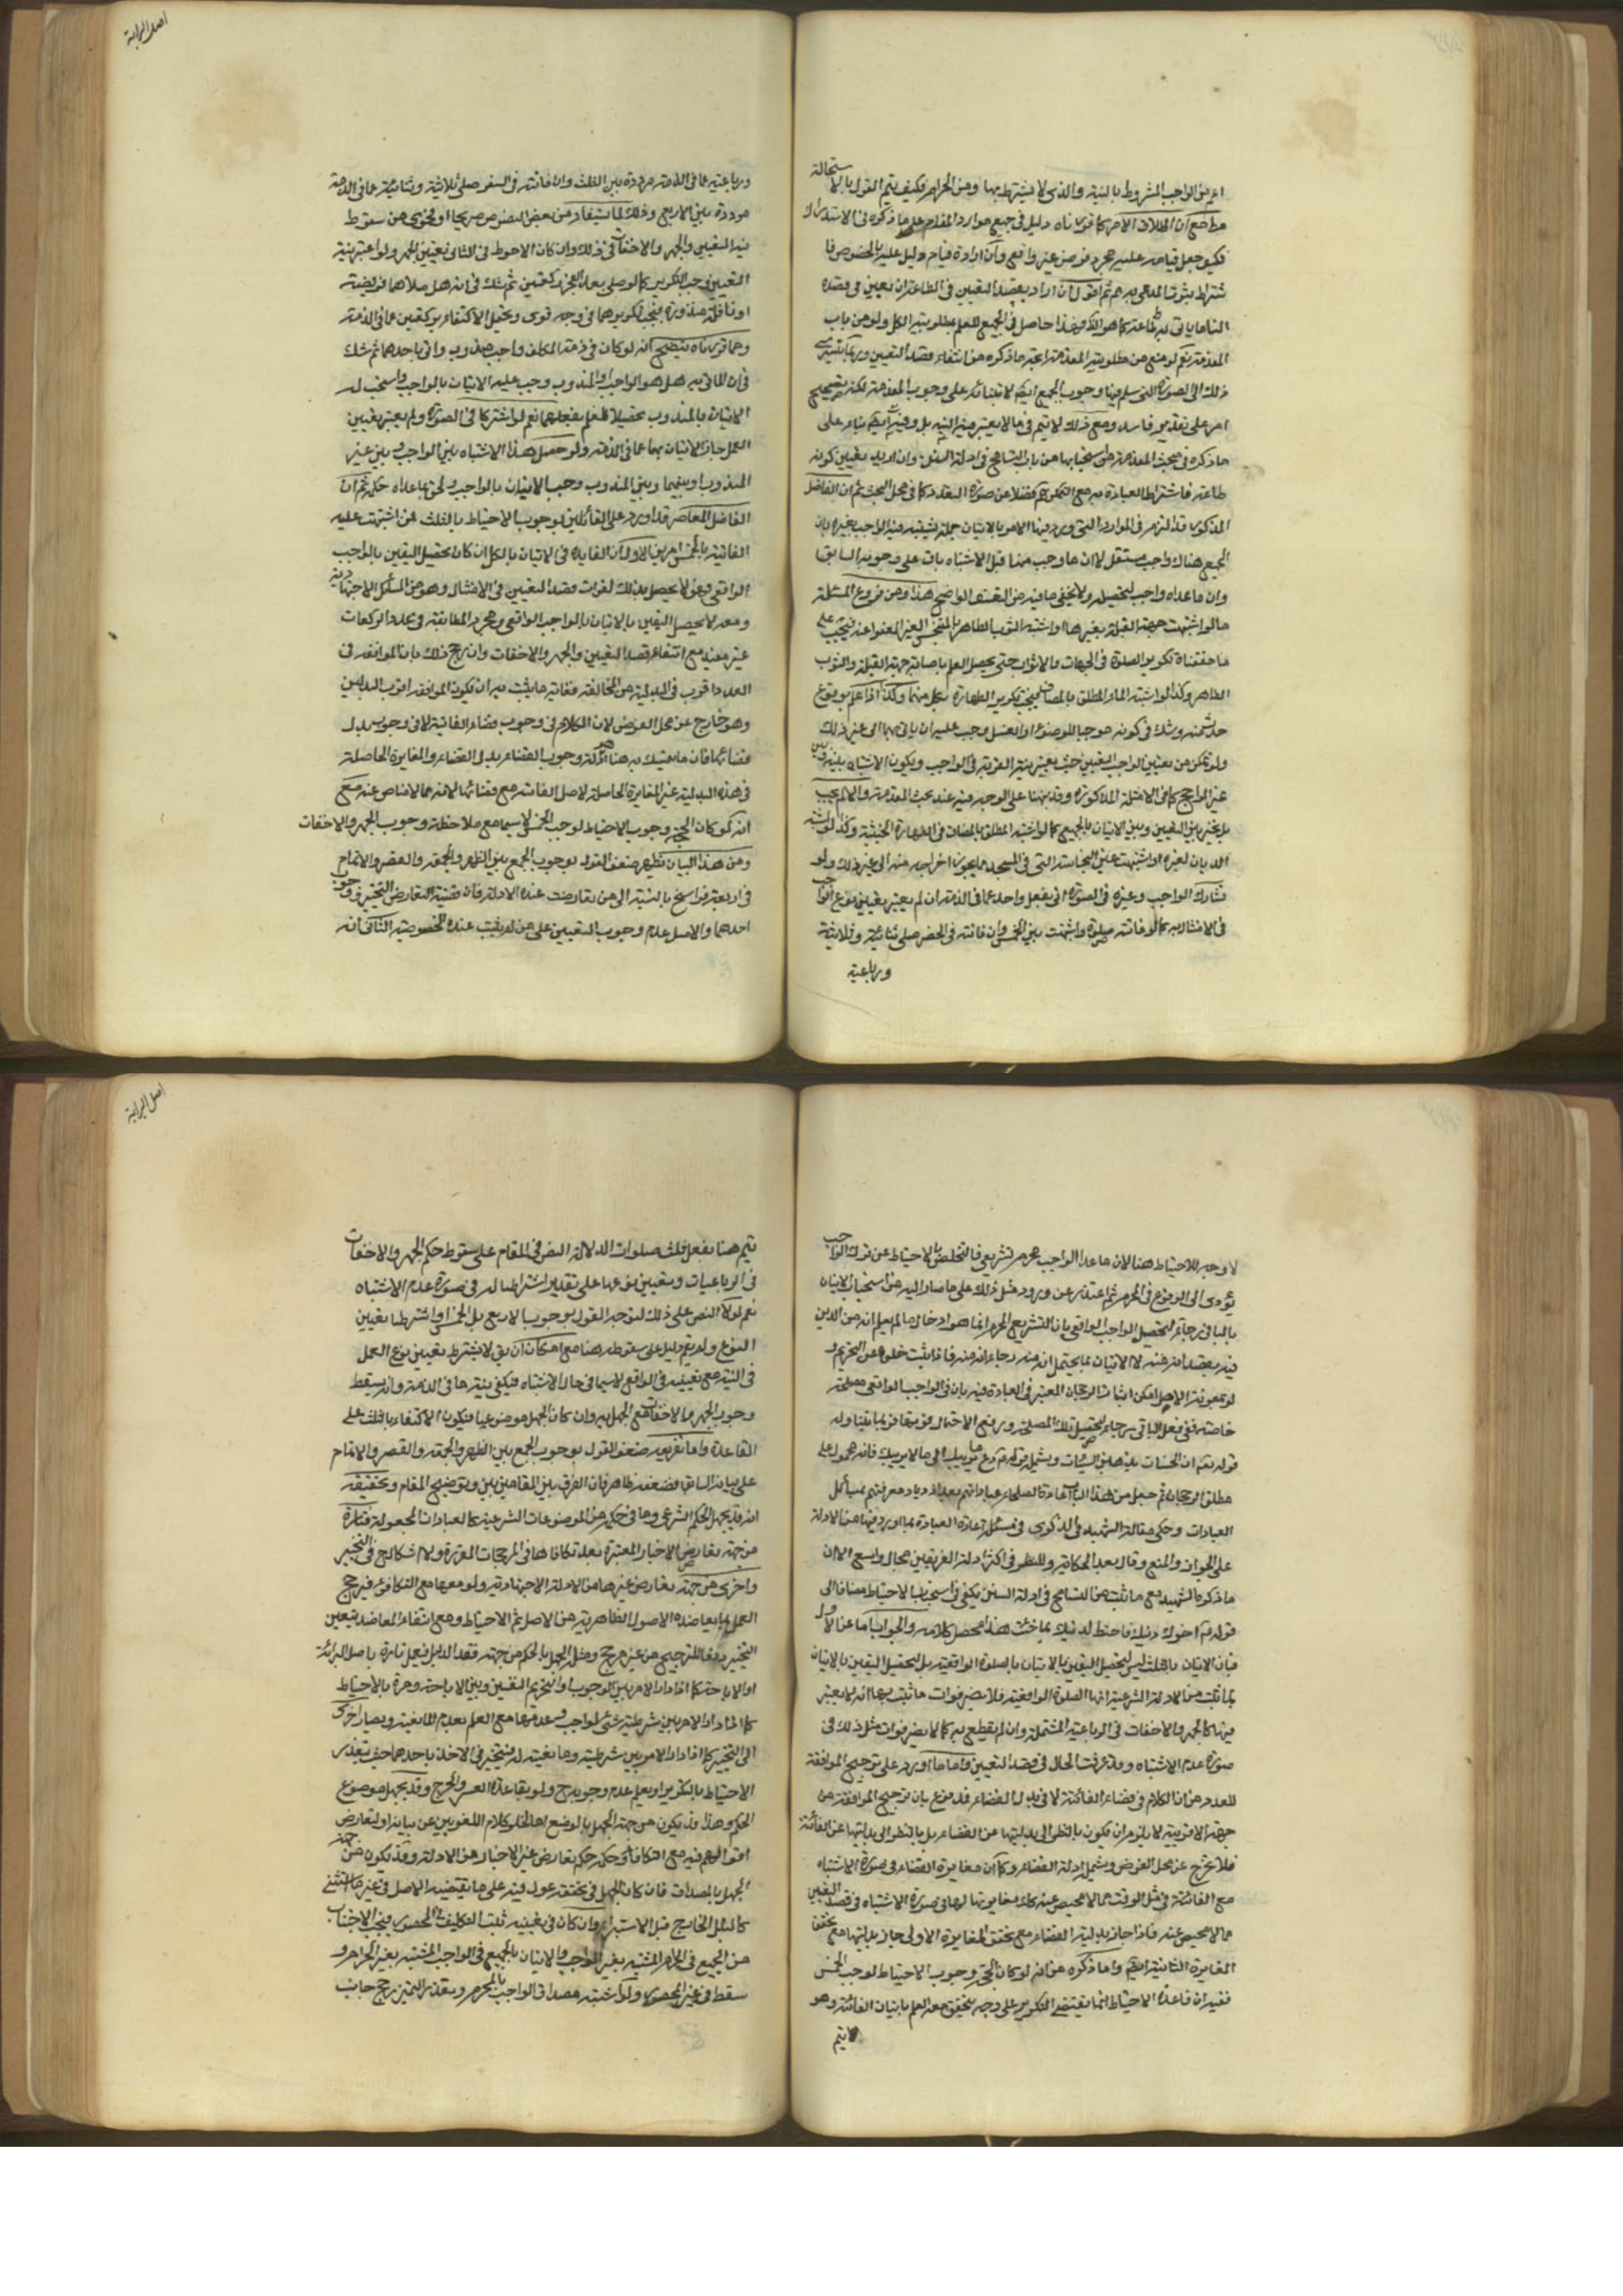 اصل البراية
اعم من الواجب المشروط بالنية والذي لا يشترط بها ومن الحرام فكيف يتم القول بالاستحالة
مط مع ان اطلاق الامر كما قررناه دليل في جميع موارد المقام على ما ذكره في الاستدراك
فكيف جعل قيامه عليه مجرد فرض غير واقع وان اراد قيام دليل عليه بالخصوص فا
شتراط ثبوت المدعى به ثم اقول ان اراد بقصد التعيين في الطاعة ان يعين في قصده
المقدمة نعم لو منع من مطلوبية المقدمة اتجه ما ذكره من انتفاء قصد التعيين
ذلك الى الصورة التي سلم فيها وجوب الجميع ايضا لابتنائه على وجوب المقدمة لكنه
امر على تقدير فاسد ومع ذلك لا يتم في ما لا يعتبر فيه النية بل وفيه ايضا بناء على
ما ذكره في مبحث المقدمة من استحبابها من باب التسامح في ادلة السنن وان اريد تعيين كونه
طاعة فاشتراط العبادة به مع التمكن مم فضلا عن صورة التعذر كما في محل البحث ثم ان الفاضل
المذكور قد التزم في الموارد التي ورد فيها الامر بالاتيان جملة يشتبه فيه الواجب بغيره بان
الجميع هناك واجب مستقل لا ان ما وجب منها قبل الاشتباه باق على وجوبه السابق
وان ما عداه واجب لتحصيله ولا يخفى ما فيه من التعسف الواضح هذا ومن فروع المسئلة
ما لو اشتبهت جهة القبلة بغيرها او اشتبه الثوب الطاهر بالمتنجس الغير المعفو عنه فيجب على
ما حققناه تكرير الصلوة في الجهات والاثواب حتى يحصل العلم باصابة جهة القبلة والثوب
الطاهر وكذا لو اشتبه الماء المطلق بالمضاف فيجب تكرير الطهارة بكل منهما وكذا اذا علم بوقوع
حدث منه وشك في كونه موجبا للوضوء او الغسل وجب عليه ان ياتي بهما الى غير ذلك
ولو تمكن من تعيين الواجب تعين حيث يعتبر نية القربة في الواجب ويكون الاشتباه بينه وبين
غير الراجح كما في الامثلة المذكورة وقد نبهنا على الوجه فيه عند بحث المقدمة والا لم يجب
بل يتخير بين التعيين وبين الاتيان بالجميع كما لو اشتبه المطلق بالمضاف في الطهارة الخبثية وكذا لو اشتبه
الديان لغيره او اشتبهت عين النجاسة التي في المسجد بما يجوز اخراجه منه الى غير ذلك ولو
تشارك الواجب وغيره في الصورة اتى بفعل واحد عما في الذمة ان لم يعتبر تعيين نوع الواجب
في الامتثال به كما لو فاتته صلوة واشتبهت بين الخمس وان فاتته في الحضر صلى ثنائية وثلاثية
ورباعية
ورباعية عما في الذمة مرددة بين الثلث وان فاتته في السفر صلى ثلاثية وثنائية عما في الذمة
مرددة بين الاربع وذلك لما يستفاد من بعض النصوص صريحا او فحوى من سقوط
نية التعيين والجهر والاخفات في ذلك وان كان الاحوط في الثاني تعيين الجهر ولو اعتبر نية
التعيين وجب التكرير كما لو صلى بعد الفجر ركعتين ثم شك في انه هل صلاهما فريضة
او نافلة منذورة فيجب تكريرهما في وجه قوى ويحتمل الاكتفاء بركعتين عما في الذمة
ومما قررناه يتضح انه لو كان في ذمة المكلف واجب ومندوب واتى باحدهما ثم شك
في ان الماتى به هل هو الواجب او المندوب وجب عليه الاتيان بالواجب واستحب له
الاتيان بالمندوب تحصيلا للعلم بفعلهما نعم لو اشتركا في الصورة ولم يعتبر تعيين
العمل جاز الاتيان بهما عما في الذمة ولو حصل هذا الاشتباه بين الواجب وبين غير
المندوب او بينهما وبين المندوب وجب الاتيان بالواجب ولحق ما عداه حكمه ثم ان
الفاضل المعاصر قد اورد على القائلين بوجوب الاحتياط بالثلث لمن اشتبهت عليه
الفائتة بالخمس امرين الاول ان الفايدة في الاتيان بالكل ان كان تحصيل اليقين بالواجب
الواقعي فهو لا يحصل بذلك لفوات قصد التعيين في الامتثال وهو من المسائل الاجتهادية
ومعه لا يحصل اليقين بالاتيان بالواجب الواقعي ومجرد المطابقة في عدد الركعات
غير مفيد مع انتفاء قصد التعيين والجهر والاخفات وان رجح ذلك بان الموافقة في
العدد اقرب في البدلية من المخالفة فغاية ما يثبت به ان يكون الموافقة اقرب البدلين
وهو خارج عن محل الفرض لان الكلام في وجوب قضاء الفائتة لا في وجوب بدل
قضائها فان ما يتمسك به هنا ادلة وجوب القضاء بدل القضاء والمغايرة الحاصلة
في هذه البدلية غير المغايرة الحاصلة لاصل الفائتة مع قضائها لانه مما لا مناص عنه مع
انه لو كان الحجة وجوب الاحتياط لوجب الخمس لا سيما مع ملاحظة وجوب الجهر والاخفات
ومن هذا البيان يظهر ضعف القول بوجوب الجمع بين الظهر والجمعة والقصر والاتمام
في اربعة فراسخ بالنسبة الى من تعارضت عنده الادلة فان قضية التعارض التخيير ووجوب
احدهما والاصل عدم وجوب التعيين على من لم يثبت عنده الخصوصية الثاني انه
اصل البراية
لا وجه للاحتياط هنا لان ما عدا الواجب محرم تشريعي فالتخلص بالاحتياط عن ترك الواجب
يؤدى الى الوقوع في المحرم ثم اعتذر عن ورود مثل ذلك على ما صار اليه من استحباب الاتيان
بالباقي رجاء لتحصيل الواجب الواقعي بان التشريع المحرم انما هو ادخال ما لم يعلم انه من الدين
فيه بقصد انه منه لا الاتيان بما يحتمل انه منه رجاء انه منه فاذا ثبت خلوه عن التحريم و
لو بمعونة الاصل امكن اثبات الرجحان المعتبر في العبادة فيه بان في الواجب الواقعي مصلحة
خاصة ففي فعل الباقي رجاء لتحصيل تلك المصلحة
قوله تعه ان الحسنات يذهبن السيئات ويشمله قوله ع دع ما يريبك الى ما لا يريبك فانه محمول على
مطلق الرجحان ثم جعل من هذا الباب اعادة الصلحاء عباداتهم بعد ازدياد معرفتهم بمسائل
العبادات وحكى مقالة الشهيد في الذكرى في مسئلة اعادة العبادة بما اورد فيها من الادلة
على الجواز والمنع وقال بعد الحكاية وللنظر في اكثر ادلة الفريقين مجال واسع الا ان
ما ذكره الشهيد مع ما ثبت من التسامح في ادلة السنن يكفي في استحباب الاحتياط مضافا الى
قوله ع اخوك دينك فاحتط لدينك بما شئت هذا محصل كلامه والجواب اما عن الاول
فبان الاتيان بالثلث ليس لتحصيل اليقين بالاتيان بالصلوة الواقعية بل لتحصيل اليقين بالاتيان
بما ثبت من الادلة الشرعية انها الصلوة الواقعية فلا يضر فوات ما ثبت شرعا انه لا يعتبر
فيها كالجهر والاخفات في الرباعية المشتملة وان لم يقطع به كما لا يضر فوات مثل ذلك في
صورة عدم الاشتباه وقد عرفت الحال في قصد التعيين واما ما اورده على ترجيح الموافقة
للعدد من ان الكلام في قضاء الفائتة لا في بدل القضاء فمدفوع بان ترجيح الموافقة من
جهة الاقربية لا يلزم ان يكون بالنظر الى بدليتها عن القضاء بل بالنظر الى بدليتها عن الفائتة
فلا يخرج عن محل الفرض ويشمله ادلة القضاء وكما ان مغايرة القضاء في صورة الاشتباه
مع الفائتة في مثل الوقت مما لا محيص عنه كذلك مغايرتها لها في صورة الاشتباه في قصد التعيين
مما لا محيص عنه فاذا جاز بدلية القضاء مع تحقق المغايرة الاولى جاز بدليتها مع تحقق
المغايرة الثانية ايضا واما ما ذكره من انه لو كان الحجة وجوب الاحتياط لوجب الخمس
ففيه ان قاعدة الاحتياط انما يقتضى التكرير على وجه يتحقق معه العلم باتيان الفائتة وهو
لا يتم
يتم هنا بفعل ثلث صلوات لدلالة النص في المقام على سقوط حكم الجهر والاخفات
في الرباعيات وتعيين نوعها على تقدير اشتراطها له في صورة عدم الاشتباه
نعم لولا النص على ذلك لتوجه القول بوجوب الاربع بل الخمس او اشترطنا تعيين
النوع ولم يقم دليل على سقوطه هنا مع امكان ان يق لا يشترط تعيين نوع العمل
في النية مع تعيينه في الواقع لا سيما في حال الاشتباه فيكفي بنية ما في الذمة وان يسقط
وجوب الجهر والاخفات مع الجهل به وان كان الجهل موضوعيا فيكون الاكتفاء بالثلث على
القاعدة واما تفريعه ضعف القول بوجوب الجمع بين الظهر والجمعة والقصر والاتمام
على بيانه السابق فضعفه ظاهر فان الفرق بين المقامين بين وتوضيح المقام وتحقيقه
انه قد يجهل الحكم الشرعي وما في حكمه من الموضوعات الشرعية كالعبادات المجعولة فتارة
من جهة تعارض الاخبار المعتبرة بعد تكافئها في المرجحات المقررة ولا اشكال ح في التخيير
واخرى من جهة تعارض غيرها من الادلة الاجتهادية ولو معها مع التكافؤ فيرجح
العمل بما يعاضده الاصول الظاهرية من الاصل ثم الاحتياط ومع انتفاء المعاضد يتعين
التخيير دفعا للترجيح من غير مرجح ومثله الجهل بالحكم من جهة فقد الدليل فيعمل تارة باصل البرائة
او الاباحة كما اذا دار الامر بين الوجوب او التحريم النفسين وبين الاباحة ومرة بالاحتياط
كما اذا دار الامر بين شرطية شئ لواجب وعدمها مع العلم بعدم المانعية ويصار اخرى
الى التخيير كما اذا دار الامر بين شرطيته ومانعيته له فيتخير في الاخذ باحدهما حيث يتعذر
الاحتياط بالتكرير او يعلم عدم وجوبه ح ولو بقاعدة العسر والحرج وقد يجهل موضوع
الحكم وهذا قد يكون من جهة الجهل بالوضع اما لخلو كلام اللغويين عن بيانه او لتعارض
اقوالهم فيه مع التكافؤ وحكمه حكم تعارض غير الاخبار من الادلة وقد يكون من جهة
الجهل بالمصداق فان كان الجهل في تحققه عول فيه على ما يقتضيه الاصل في غير ما استثنى
كالبلل الخارج قبل الاستبراء وان كان في تعيينه ثبت التكليف في المحصور فيجب الاجتناب
من الجميع في الحرام المشتبه بغير الواجب والاتيان بالجميع في الواجب المشتبه بغير الحرام و
سقط في غير المحصور ولو اشتبه مصداق الواجب بالمحرم وتعذر التميز رجح جانب